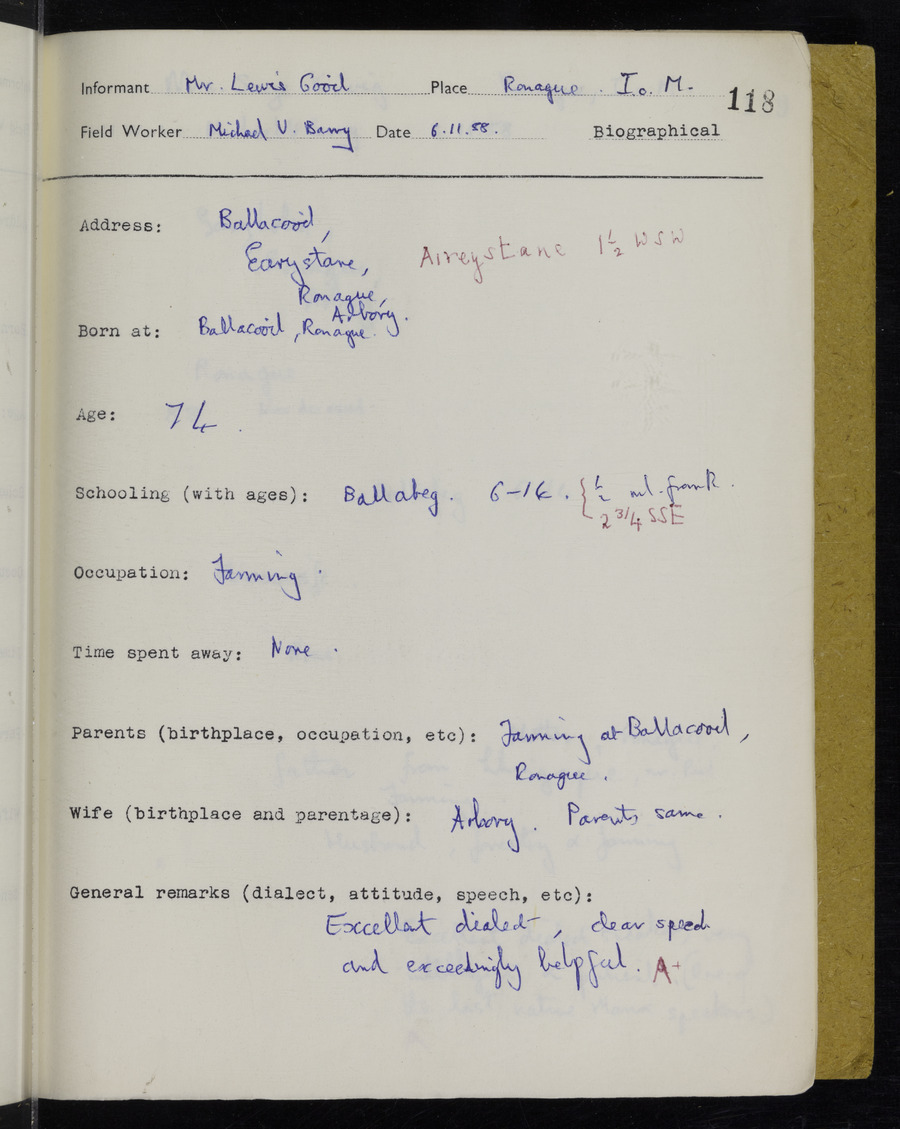 Informant Mr. Lewis Gooil Place Ronague . I. o. M.
118
Field Worker Michael V. Barry Date 6.11.58. Biographical
Address: Ballacooil,
Earystane, Aireystane 1½ WSW
Ronague,
Arbory.
Born at: Ballacooil, Ronague.
Age: 74.
Schooling (with ages): Ballabeg. 6-14. { ½ ml. from R.
2 3/4 SSE
Occupation: Farming.
Time spent away: None.
Parents (birthplace, occupation, etc): Farming at Ballacooil,
Ronague.
Wife (birthplace and parentage): Arbory. Parents same.
General remarks (dialect, attitude, speech, etc):
Excellent dialect, clear speech
and exceedingly helpful. A+